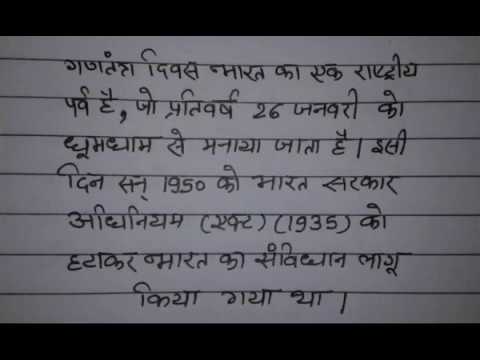 गणतंत्र दिवस भारत का एक राष्ट्रीय
पर्व है, जो प्रतिवर्ष 26 जनवरी को
धूमधाम से मनाया जाता है। इसी
दिन सन् 1950 को भारत सरकार
अधिनियम (एक्ट) (1935) को
हटाकर भारत का संविधान लागू
किया गया था।